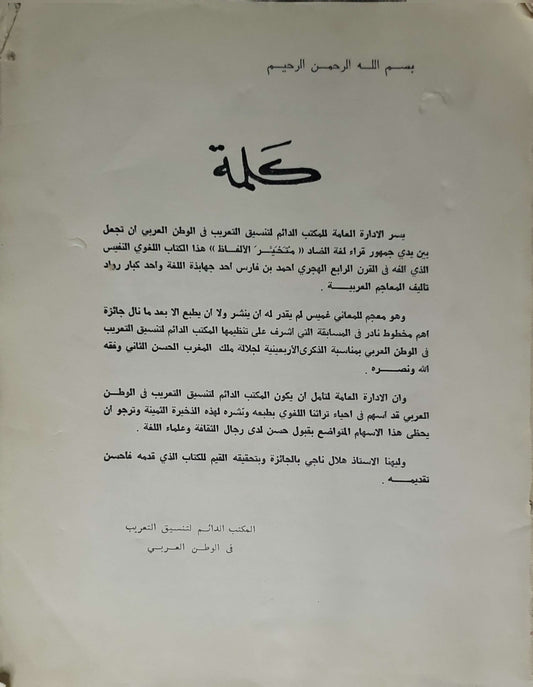 بسم الله الرحمن الرحيم
كلمة
يسر الادارة العامة للمكتب الدائم لتنسيق التعريب فى الوطن العربي ان تجعل
بين يدي جمهور قراء لغة الضاد « مُتَخَيَّر الألفاظ » هذا الكتاب اللغوي النفيس
الذي الفه فى القرن الرابع الهجري احمد بن فارس احد جهابذة اللغة واحد كبار رواد
تاليف المعاجم العربية .
وهو معجم للمعاني غميس لم يقدر له ان ينشر ولا ان يطبع الا بعد ما نال جائزة
اهم مخطوط نادر فى المسابقة التي اشرف على تنظيمها المكتب الدائم لتنسيق التعريب
فى الوطن العربي بمناسبة الذكرى الأربعينية لجلالة ملك المغرب الحسن الثاني وفقه
الله ونصره .
وان الادارة العامة لتامل ان يكون المكتب الدائم لتنسيق التعريب فى الوطن
العربي قد اسهم فى احياء تراثنا اللغوي بطبعه ونشره لهذه الذخيرة الثمينة وترجو ان
يحظى هذا الاسهام المتواضع بقبول حسن لدى رجال الثقافة وعلماء اللغة .
وليهنا الاستاذ هلال ناجي بالجائزة وبتحقيقه القيم للكتاب الذي قدمه فاحسن
تقديمه .
المكتب الدائم لتنسيق التعريب
فى الوطن العربي